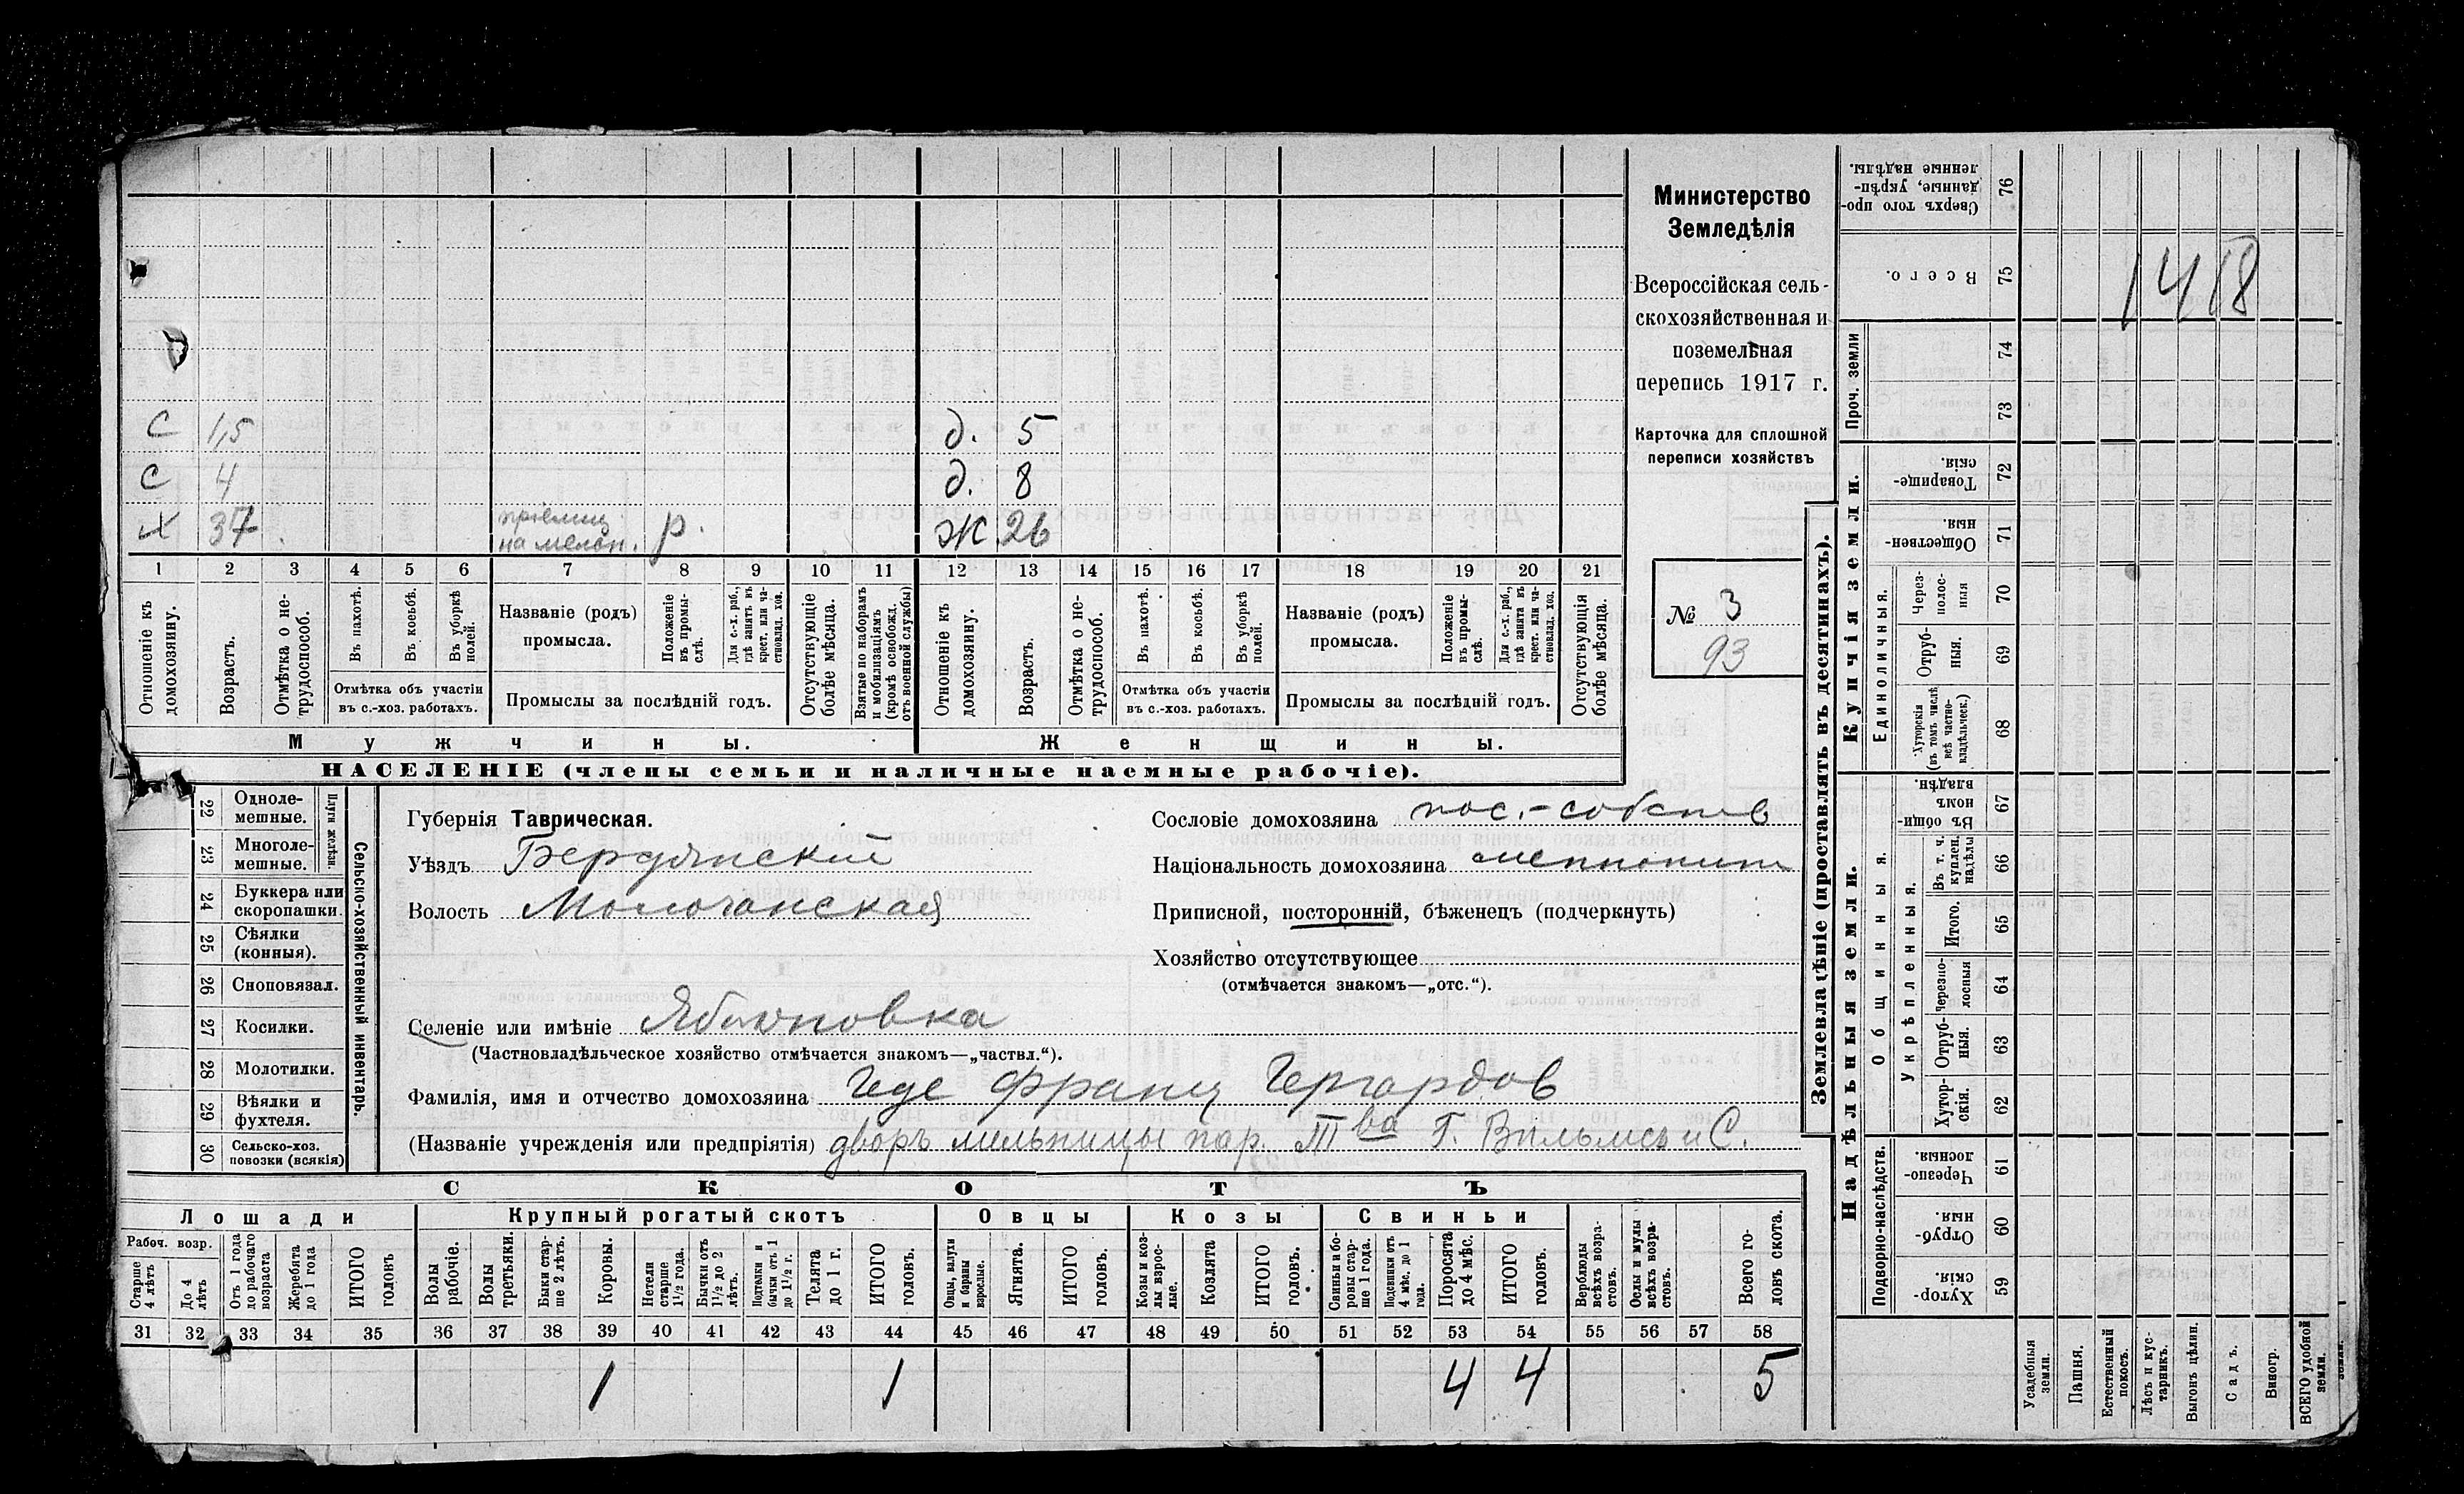 Министерство
Земледѣлія
Всероссійская сель-
скохозяйственная и
поземельная
перепись 1917 г.
Карточка для сплошной
переписи хозяйствъ
№ 3
93
С 1,5 д. 5
С 4 д. 8
Х 37 приемщ. на мельн. р. Ж 26
1 2 3 4 5 6 7 8 9 10 11 12 13 14 15 16 17 18 19 20 21
Отношеніе къ домохозяину.
Возрастъ.
Отмѣтка о не-трудоспособ.
Въ пахотѣ.
Въ косьбѣ.
Въ уборкѣ полей.
Отмѣтка объ участіи
въ с.-хоз. работахъ.
Названіе (родъ)
промысла.
Положеніе въ промы-слѣ.
Для с.-х. раб., гдѣ занятъ въ крест. или ча-стновлад. хоз.
Промыслы за послѣдній годъ.
Отсутствующіе болѣе мѣсяца.
Взятые по наборамъ и мобилизаціямъ (кромѣ освобожд. отъ военной службы)
Отношеніе къ домохозяину.
Возрастъ.
Отмѣтка о не-трудоспособ.
Въ пахотѣ.
Въ косьбѣ.
Въ уборкѣ полей.
Отмѣтка объ участіи
въ с.-хоз. работахъ.
Названіе (родъ)
промысла.
Положеніе въ промы-слѣ.
Для с.-х. раб., гдѣ занятъ въ крест. или ча-стновлад. хоз.
Промыслы за послѣдній годъ.
Отсутствующія болѣе мѣсяца.
Мужчины. Женщины.
НАСЕЛЕНІЕ (члены семьи и наличные наемные рабочіе).
Сельско-хозяйственный инвентарь
Плуги желѣз.
22 Однолемешные.
23 Многолемешные.
24 Буккера или скоропашки.
25 Сѣялки (конныя).
26 Сноповязал.
27 Косилки.
28 Молотилки.
29 Вѣялки и фухтеля.
30 Сельско-хоз. повозки (всякія)
Губернія Таврическая.
Уѣздъ Бердянский
Волость Молочанская
Сословіе домохозяина пос.-собств
Національность домохозяина меннонит
Приписной, посторонній, бѣженецъ (подчеркнуть)
Хозяйство отсутствующее
(отмѣчается знакомъ—„отс.“).
Селеніе или имѣніе Яблоновка
(Частновладѣльческое хозяйство отмѣчается знакомъ—„частвл.“).
Фамилія, имя и отчество домохозяина Геде Франц Гергардов
(Названіе учрежденія или предпріятія) дворъ мельницы пар. Т ва Г. Вильмсъ и С.
СКОТЪ
Лошади Крупный рогатый скотъ Овцы Козы Свиньи
Рабоч. возр.
Старше 4 лѣтъ
До 4 лѣтъ
Отъ 1 года до рабочаго возраста
Жеребята до 1 года
ИТОГО головъ
Волы рабочіе.
Волы третьяки.
Быки стар-ше 2 лѣтъ.
Коровы.
Нетели старше 1½ года.
Бычки отъ 1½ до 2 лѣтъ.
Подтелки и бычки отъ 1 до 1½ г.
Телята до 1 г.
ИТОГО головъ.
Овцы, валухи и бараны взрослые.
Ягнята.
ИТОГО головъ.
Козы и коз-лы взрос-лые.
Козлята
ИТОГО головъ.
Свиньи и бо-ровы стар-ше 1 года.
Подсвинки отъ 4 мѣс. до 1 года.
Поросята до 4 мѣс.
ИТОГО головъ.
Верблюды всѣхъ возра-стовъ.
Ослы и мулы всѣхъ возра-стовъ.
Всего го-ловъ скота.
31 32 33 34 35 36 37 38 39 40 41 42 43 44 45 46 47 48 49 50 51 52 53 54 55 56 57 58
1 1 4 4 5
Землевладѣніе (проставлять въ десятинахъ).
Надѣльныя земли.
Купчія земли.
Проч. земли
Сверхъ того про-данные, укрѣп-ленные надѣлы. 76
Всего. 75
1418
74
73
Товарище-скія. 72
Обществен-ныя. 71
Единоличныя.
Черезполос-ныя 70
Отруб-ныя. 69
Хуторскія (въ томъ числѣ всѣ частно-владѣльческ.) 68
Въ общи-номъ владѣн. 67
Общинныя.
Укрѣпленныя.
Въ т. ч. куплен. надѣлы 66
Итого. 65
Черезпо-лосныя 64
Отруб-ныя. 63
Хутор-скія. 62
Подворно-наслѣдств.
Черезпо-лосныя. 61
Отруб-ныя. 60
Хутор-скія. 59
Усадебныя земли.
Пашня.
Естественный покосъ.
Лѣсъ и кус-тарникъ.
Выгонъ цѣлин.
Садъ.
Виногр.
ВСЕГО удобной земли.